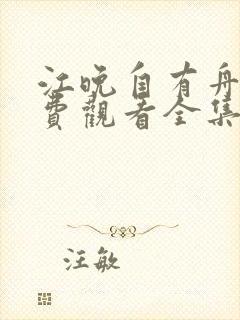 江晚自有舟
费觀看全集
汪敏